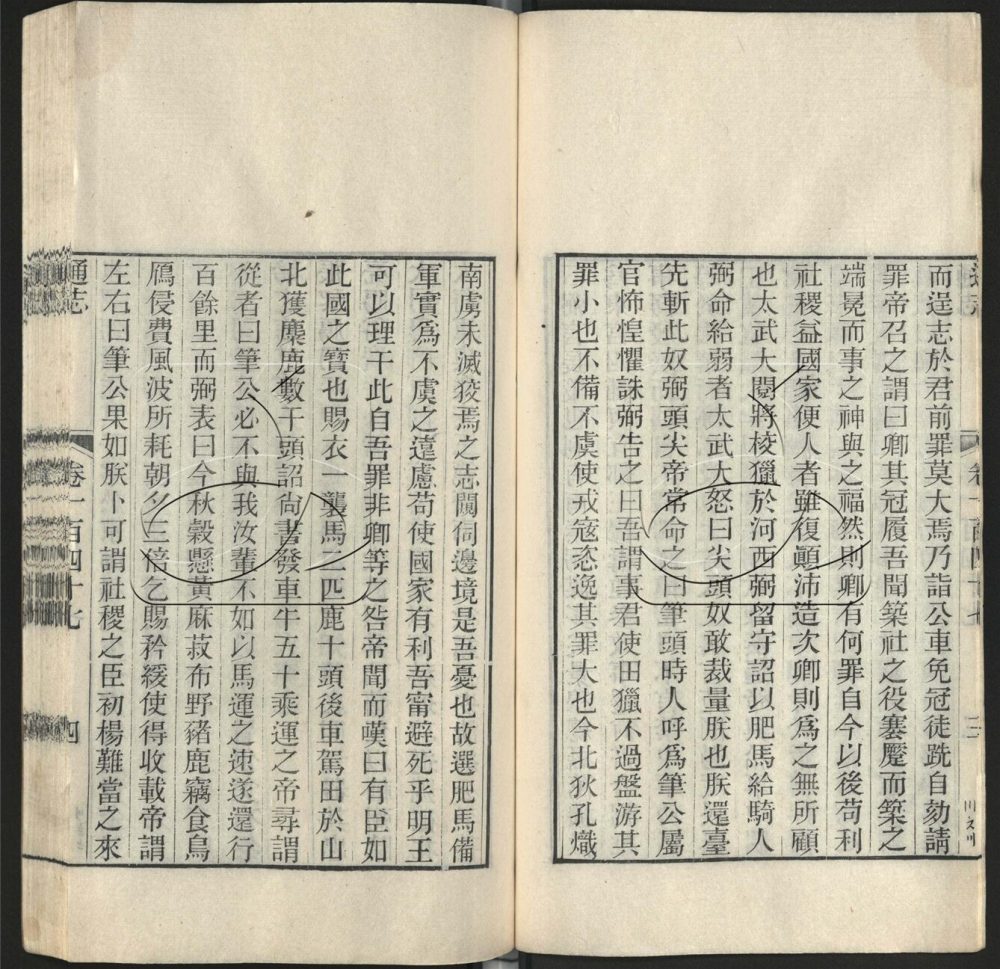 而逞志於君前罪莫大焉乃詣公車免冠徒跣自劾請
罪帝召之謂曰卿其冠履吾聞築社之役蹇蹷而築之
端冕而事之神與之福然則卿有何罪自今以後苟利
社稷益國家便人者雖復顚沛造次卿則爲之無所顧
也太武大閱將校獵於河西弼留守詔以肥馬給騎人
弼命給弱者太武大怒曰尖頭奴敢裁量朕也朕還臺
先斬此奴弼頭尖帝常命之曰筆頭時人呼爲筆公屬
官怖惶懼誅弼告之曰吾謂事君使田獵不過盤游其
罪小也不備不虞使戎寇恣逸其罪大也今北狄孔熾
南虜未滅狡焉之志闚伺邊境是吾憂也故選肥馬備
軍實爲不虞之遠慮苟使國家有利吾寧避死乎明王
可以理干此自吾罪非卿等之咎帝聞而嘆曰有臣如
此國之寶也賜衣一襲馬二匹鹿十頭後車駕田於山
北獲麋鹿數千頭詔尙書發車牛五十乘運之帝尋謂
從者曰筆公必不與我汝輩不如以馬運之速遂還行
百餘里而弼表曰今秋穀懸黃麻菽布野豬鹿竊食鳥
鴈侵費風波所耗朝夕三倍乞賜矜緩使得收載帝謂
左右曰筆公果如朕卜可謂社稷之臣初楊難當之來
通志
卷一百四十七
四